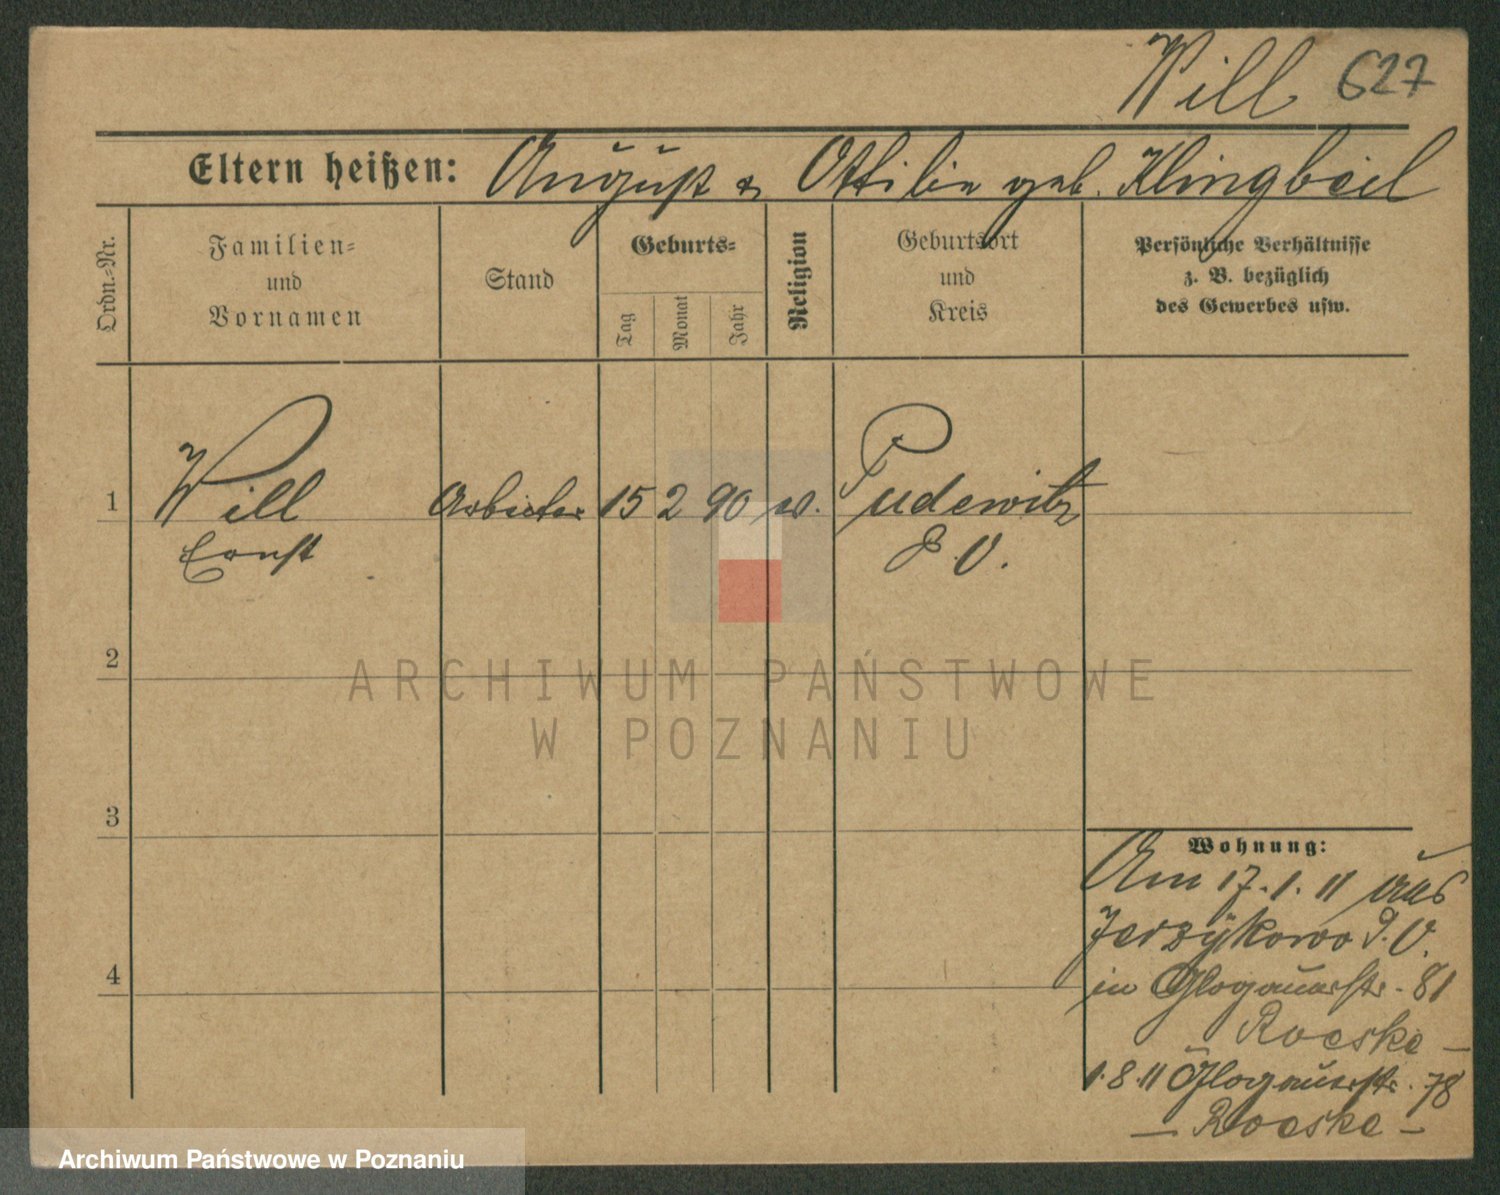 Will 627
Eltern heißen: August & Ottilie geb. Klingbeil
Ordn.-Nr.
Familien-
und
Vornamen
Stand
Geburts-
Tag
Monat
Jahr
Religion
Geburtsort
und
Kreis
Persönliche Verhältnisse
z. B. bezüglich
des Gewerbes usw.
1 Will Arbeiter 15 2 90 ev. Pudewitz
Ernst P. O.
2
3
4
Wohnung:
Am 17.1.11 aus
Jerzykowo P. O.
in Glogauerstr. 81
Roeske –
1.8.11 Glogauerstr. 78
– Roeske –
ARCHIWUM PAŃSTWOWE
W POZNANIU
Archiwum Państwowe w Poznaniu